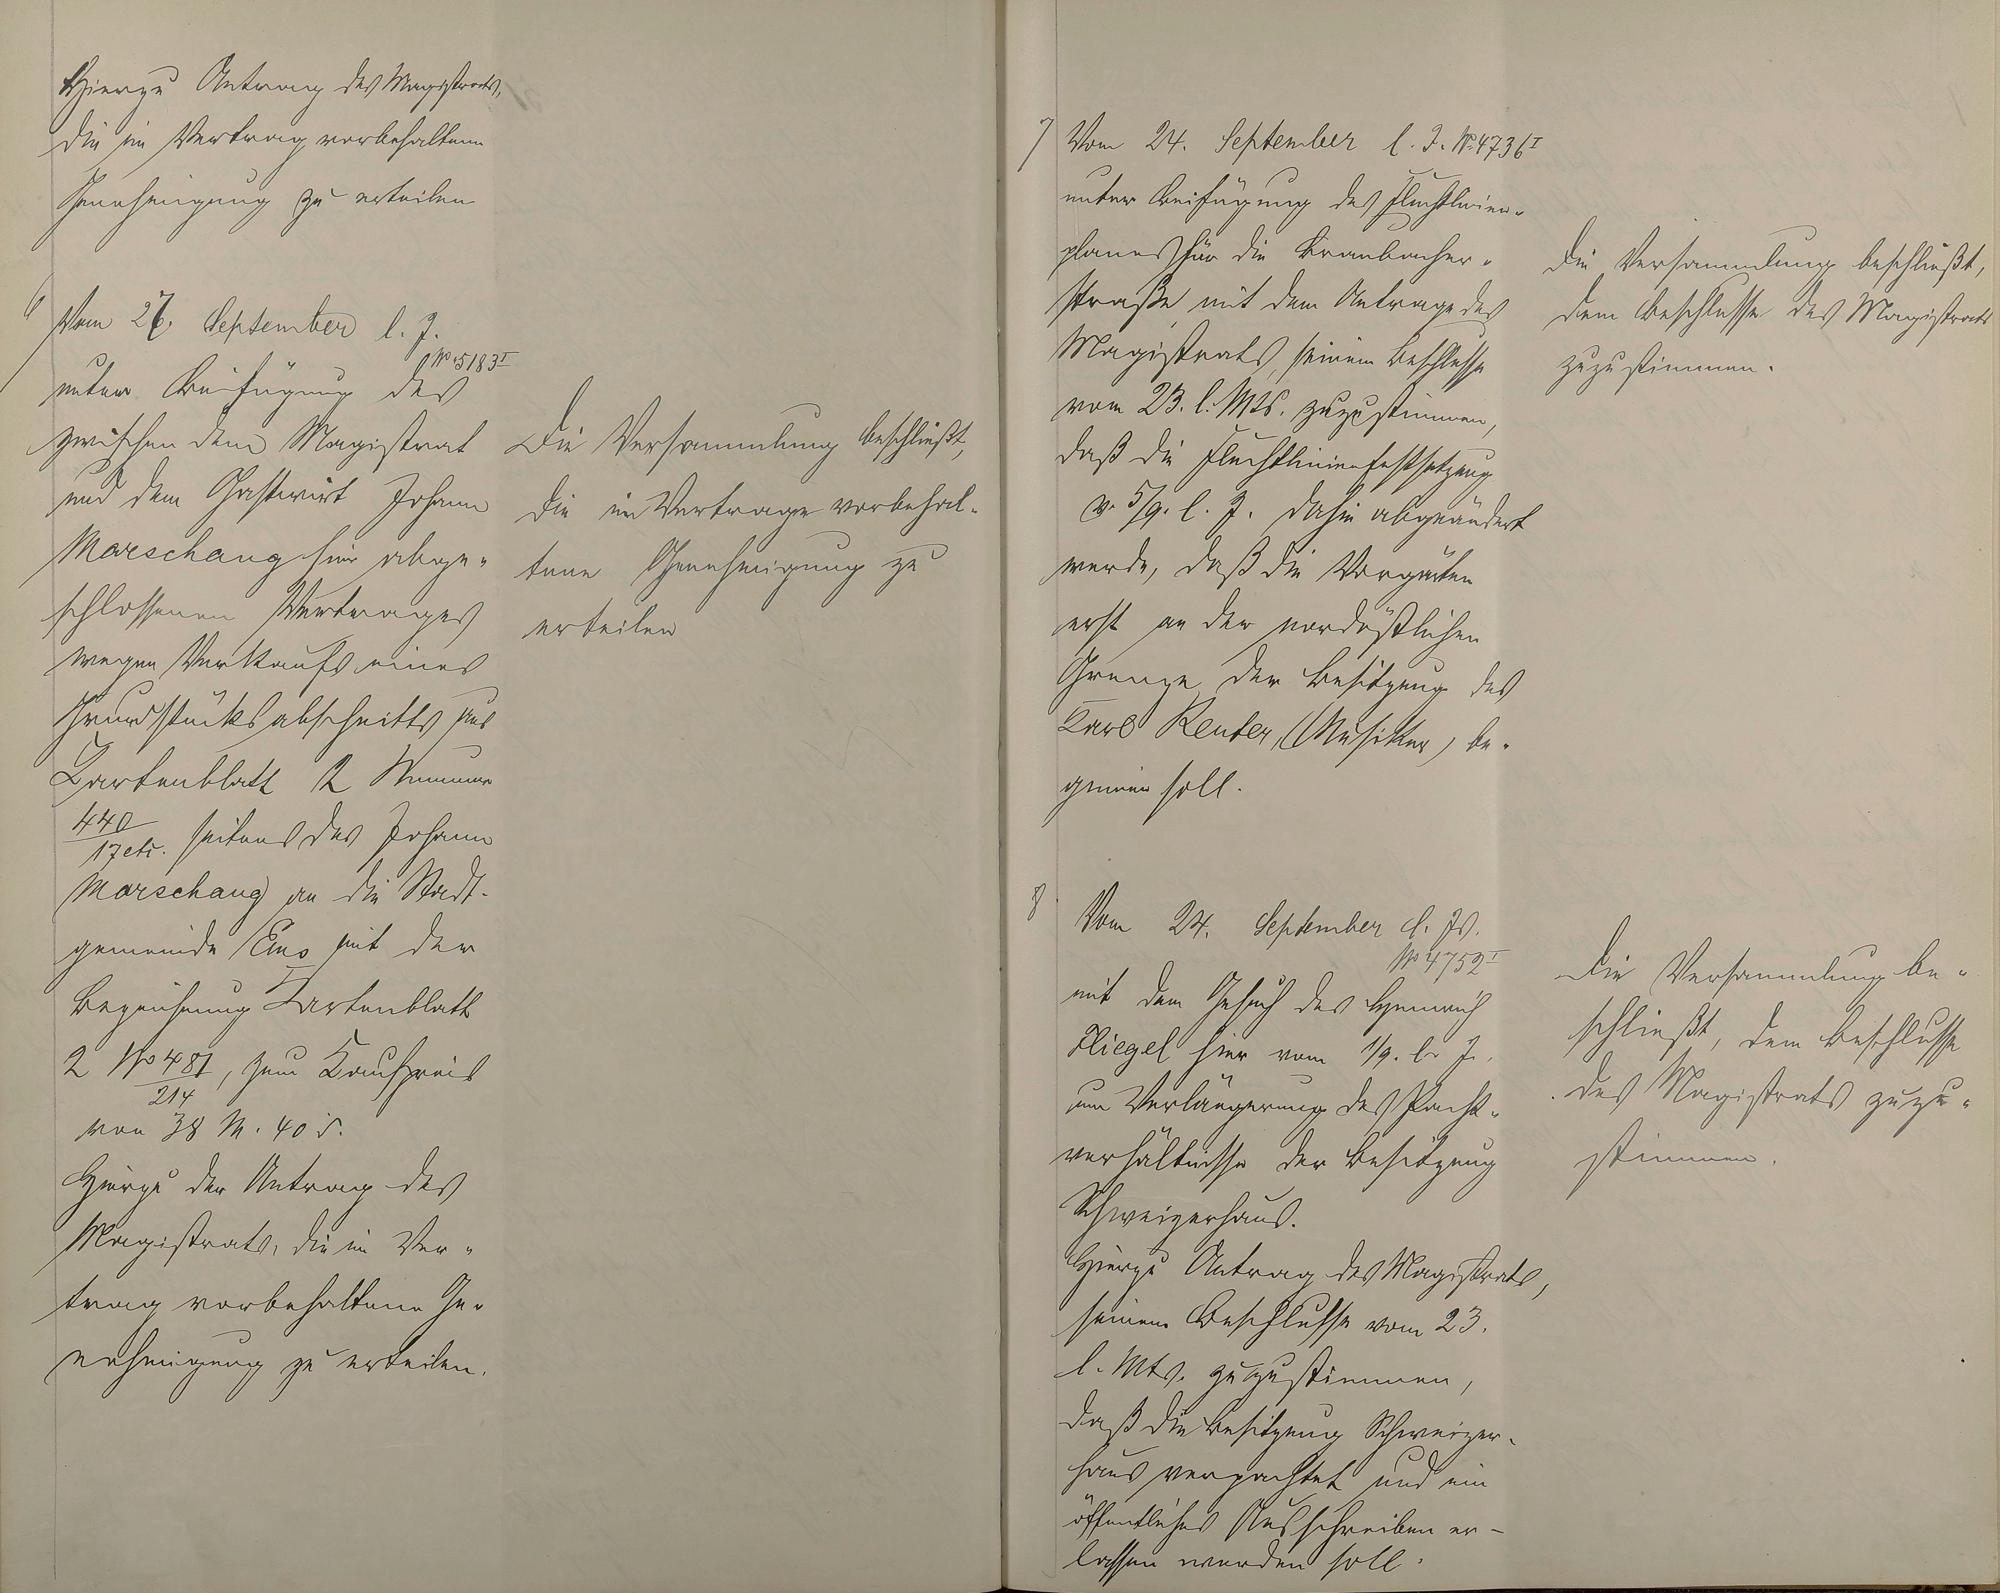 Hierzu Antrag des Magistrats,
die im Vertrag vorbehaltene
Genehmigung zu erteilen
6
Vom 27. September l. J.
No 5183 I
unter Beifügung des
zwischen dem Magistrat
und dem Gastwirt Johann
Marschang hier abge-
schlossenen Vertrages
wegen Verkaufs eines
Grundstücksabschnitts aus
Kartenblatt 2 Nummer
440/17 etc. seitens des Johann
Marschang an die Stadt-
gemeinde Ems mit der
Bezeichnung Kartenblatt
2 No 481/214, zum Kaufpreis
von 38 M. 40 d.
Hierzu der Antrag des
Magistrats, die im Ver-
trag vorbehaltene Ge-
nehmigung zu erteilen.
Die Versammlung beschließt,
die im Vertrage vorbehal-
tene Genehmigung zu
erteilen
7
Vom 24. September l. J. No 4736 I
unter Beifügung des Fluchtlinien-
planes für die Braubacher-
straße mit dem Antrage des
Magistrats, seinem Beschlusse
vom 23. l. Mts. zuzustimmen,
daß die Fluchtlinienfestsetzung
v. 5/9. l. J. dahin abgeändert
werde, daß die Vorgärten
erst an der nordöstlichen
Grenze der Besitzung des
Karl Reuter, (Musiker) be-
ginnen soll.
Die Versammlung beschließt,
dem Beschlusse des Magistrats
zuzustimmen.
8.
Vom 24. September l. Js.
No 4752 I
mit dem Gesuch des Heinrich
Fliegel hier vom 1/9. l. J.
um Verlängerung des Pacht-
verhältnisses der Besitzung
Schweizerhaus.
Hierzu Antrag des Magistrats,
seinem Beschlusse vom 23.
l. Mts. zuzustimmen,
daß die Besitzung Schweizer-
haus verpachtet und ein
öffentliches Ausschreiben er-
lassen werden soll.
Die Versammlung be-
schließt, dem Beschlusse
des Magistrats zuzu-
stimmen.